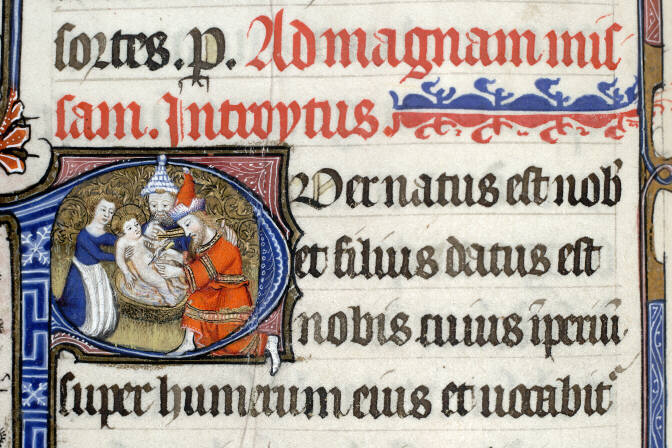 sortes. p. Ad magnam mis
sam. Introytus.
PUer natus est nob̾
et filius datus est
nobis cuius īperiū
super humerum eius et uocabit᷑